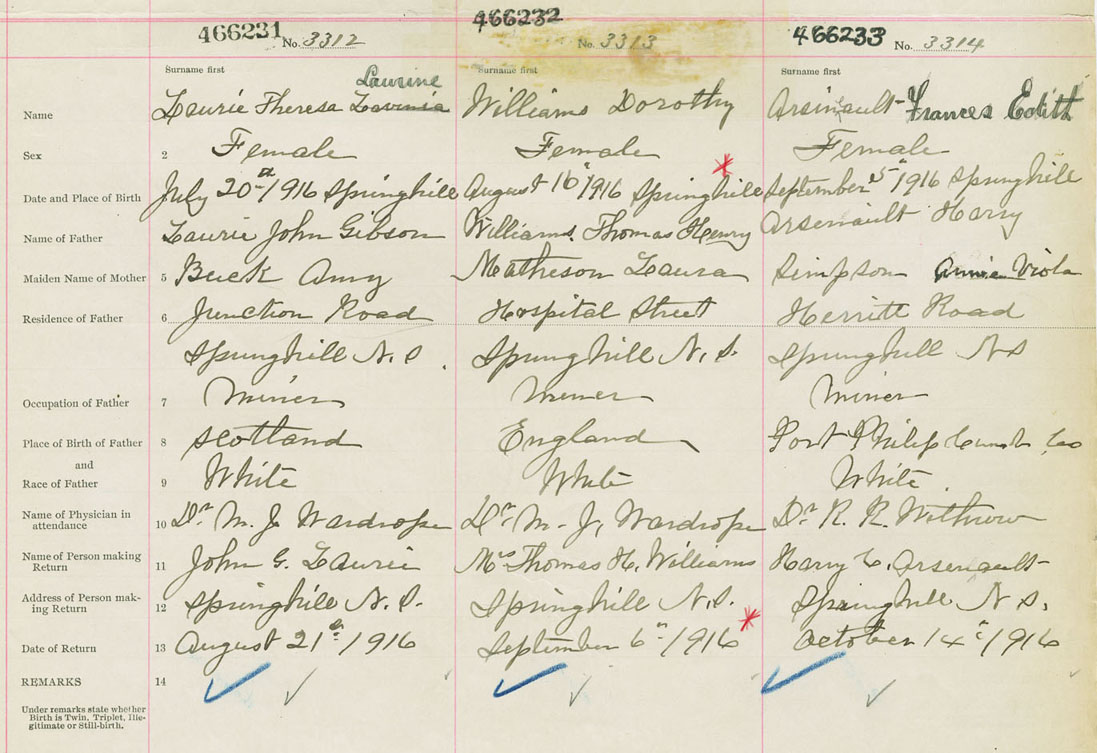 466231 No. 3312 466232 No. 3313 466233 No. 3314
Surname first Surname first Surname first
Laurine
Name Laurie Theresa Lavinia Williams Dorothy Arsinault Frances Edith
Sex 2 Female Female Female
Date and Place of Birth July 20th 1916 Springhill August 16th 1916 Springhill September 5th 1916 Springhill
Name of Father Laurie John Gibson Williams Thomas Henry Arsenault Harry
Maiden Name of Mother 5 Buck Amy Matheson Laura Simpson Annie Viola
Residence of Father 6 Junction Road Hospital Street Herritt Road
Springhill N.S. Springhill N.S. Springhill NS
Occupation of Father 7 Miner Miner Miner
Place of Birth of Father 8 Scotland England Port Philip Cumb Co
and
Race of Father 9 White White White
Name of Physician in
attendance 10 Dr M. J. Wardrope Dr M. J. Wardrope Dr R. R. Withrow
Name of Person making
Return 11 John G. Laurie Mrs Thomas H. Williams Harry Arsenault
Address of Person mak-
ing Return 12 Springhill N.S. Springhill N.S. Springhill N S.
Date of Return 13 August 21st 1916 September 6th 1916 October 14th 1916
REMARKS 14
Under remarks state whether
Birth is Twin, Triplet, Ille-
gitimate or Still-birth.